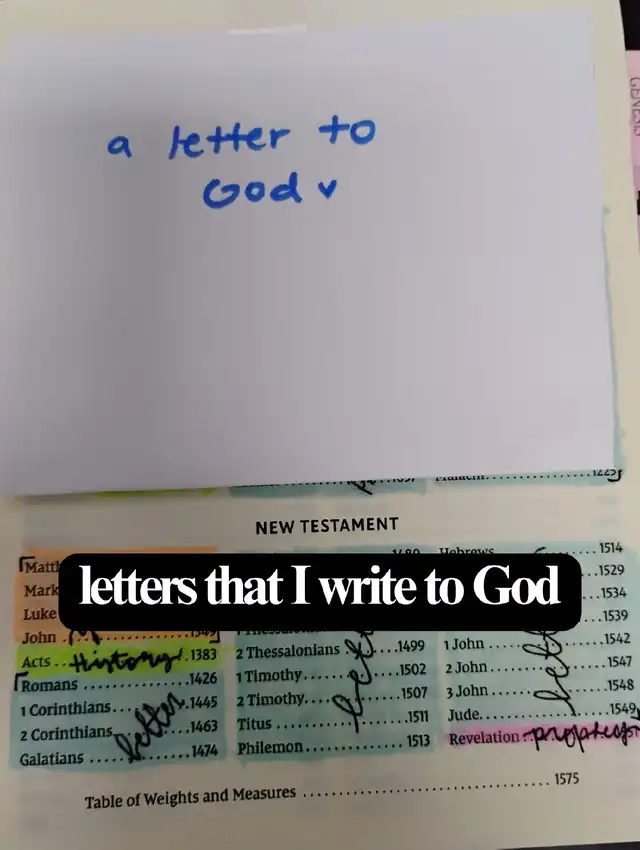 a letter to
God v
GENESIS
Malachi 1225
NEW TESTAMENT
letters that I write to God
Matt
Mark
Luke
John 1345
Acts History 1383
Romans 1426
1 Corinthians 1445
2 Corinthians 1463
Galatians 1474
letter
1480
2 Thessalonians 1499
1 Timothy 1502
2 Timothy 1507
Titus 1511
Philemon 1513
Hebrews 1514
1529
1534
1539
1 John 1542
2 John 1547
3 John 1548
Jude 1549
Revelation prophesy
Table of Weights and Measures 1575